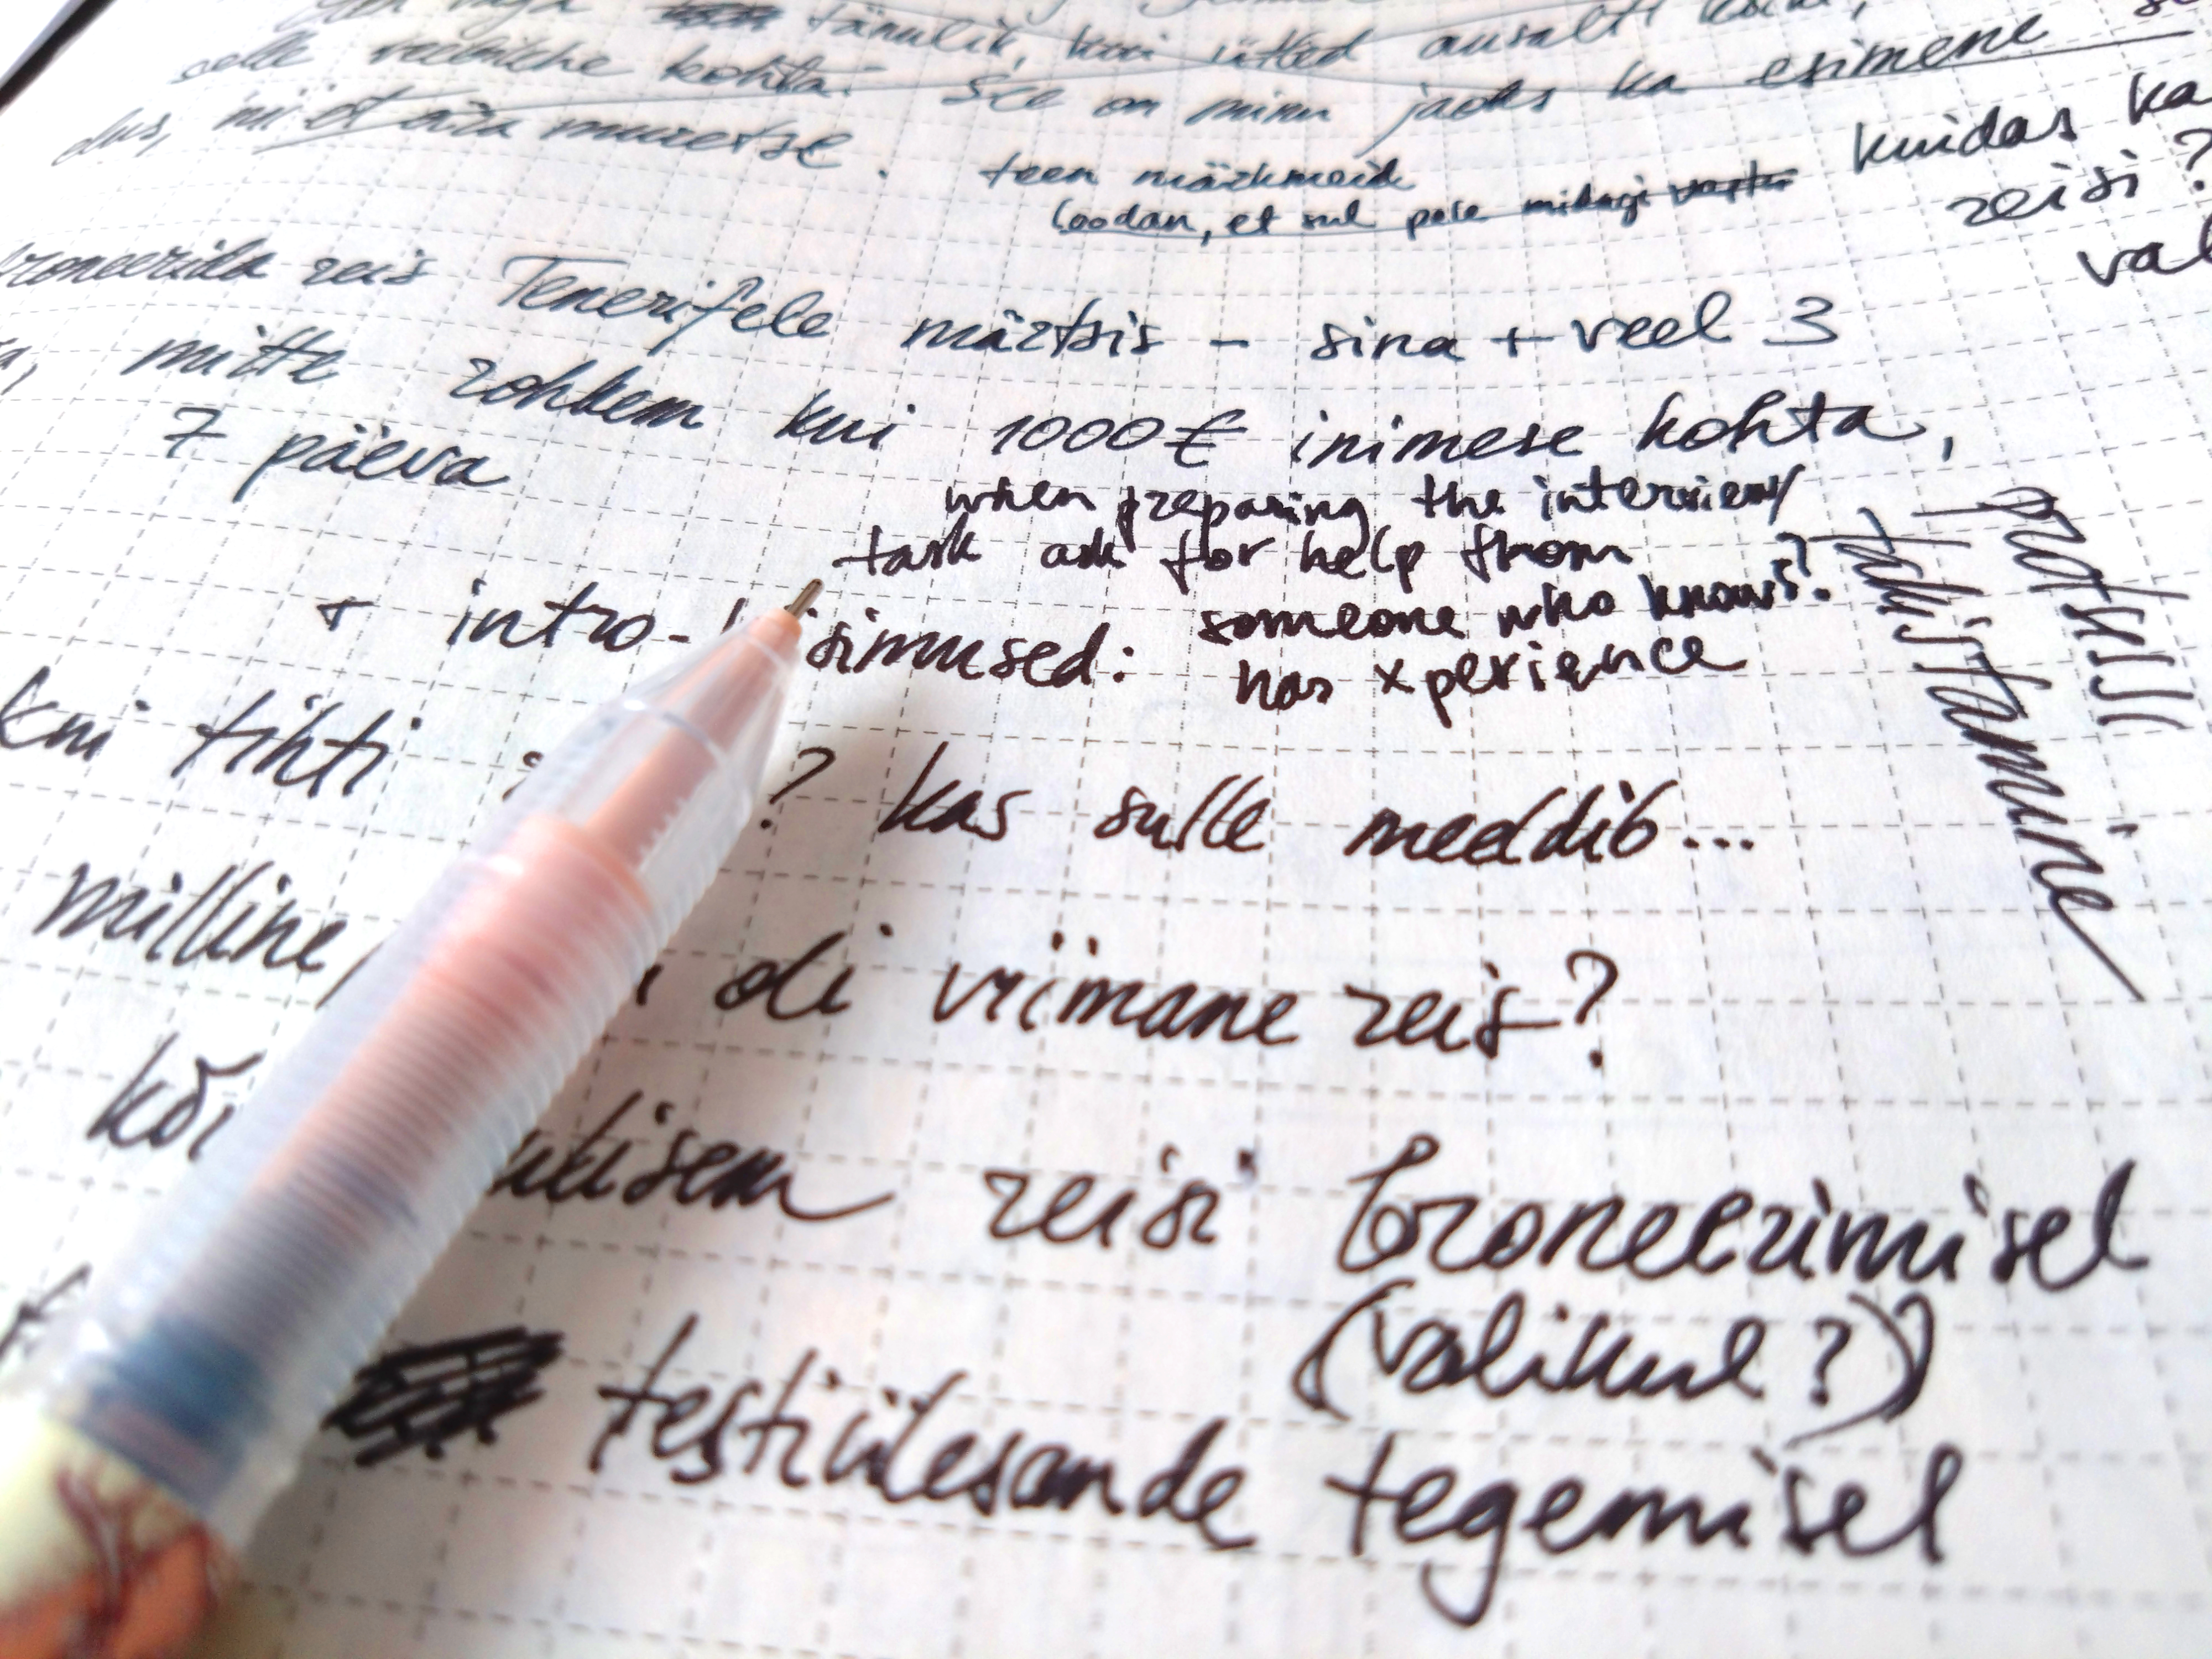 tänulik, kui ütled ausalt
selle veebilehe kohta. See on minu jaoks ka esimene
dus, nii et ära muretse.
teen märkmeid
loodan, et sul pole midagi vastu
kuidas ka
reisi?
val
broneerida reis Tenerifele märtsis - sina + veel 3
mitte rohkem kui 1000€ inimese kohta,
7 päeva
when preparing the interview
task ask for help from
someone who knows?
has xperience
protsessi
takistamine
+ intro- simused:
kui tihti ? kas sulle meeldib...
milline oli viimane reis?
reisi broneerimisel
(valikul?)
testülesande tegemisel